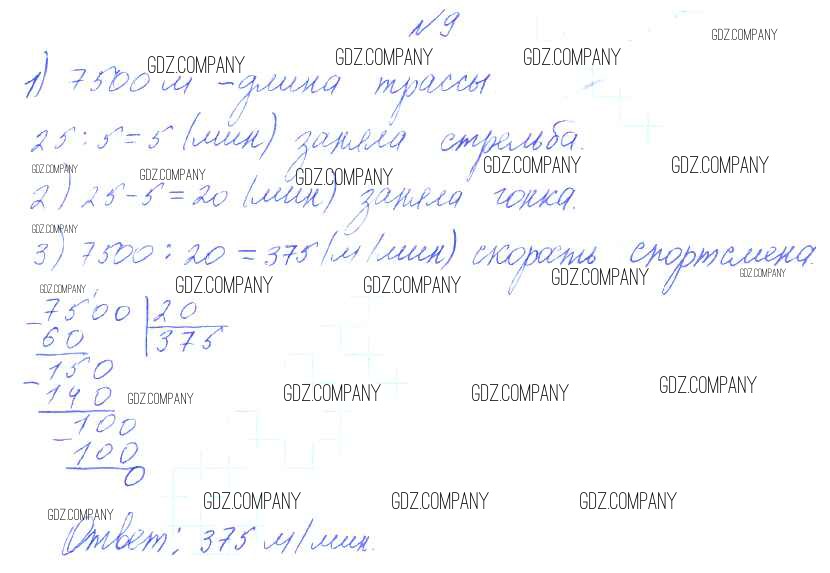 №9
GDZ.COMPANY
GDZ.COMPANY GDZ.COMPANY GDZ.COMPANY
1) 7500 м – длина трассы
25 : 5 = 5 (мин) заняла стрельба.
GDZ.COMPANY GDZ.COMPANY GDZ.COMPANY GDZ.COMPANY GDZ.COMPANY
2) 25 - 5 = 20 (мин) заняла гонка.
GDZ.COMPANY
3) 7500 : 20 = 375 (м/мин) скорость спортсмена.
GDZ.COMPANY GDZ.COMPANY GDZ.COMPANY GDZ.COMPANY GDZ.COMPANY
- 7500 | 20
60 | 375
- 150
140
GDZ.COMPANY GDZ.COMPANY GDZ.COMPANY GDZ.COMPANY
- 100
100
0
GDZ.COMPANY GDZ.COMPANY GDZ.COMPANY GDZ.COMPANY
Ответ: 375 м/мин.